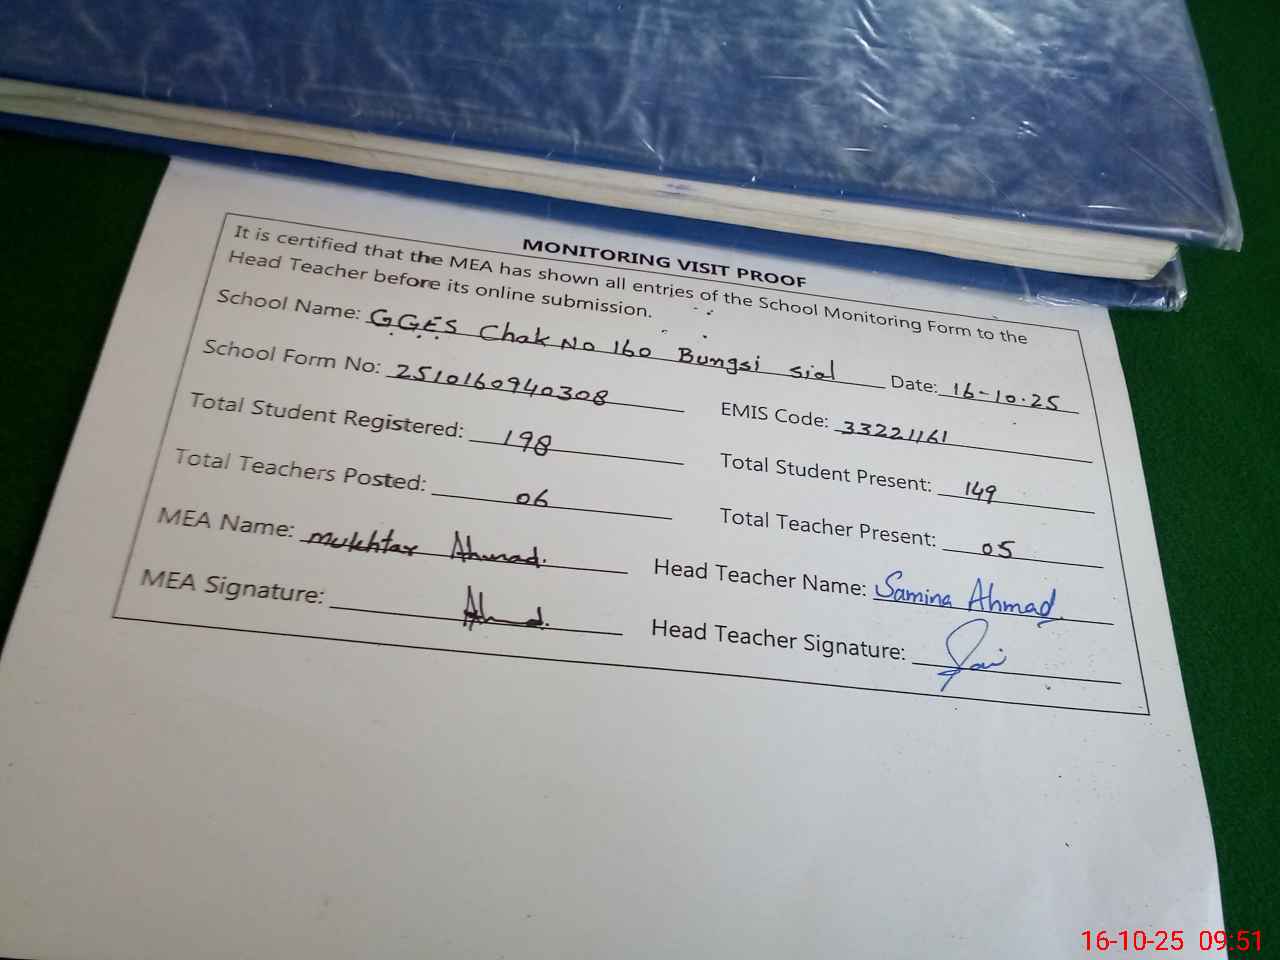 MONITORING VISIT PROOF
It is certified that the MEA has shown all entries of the School Monitoring Form to the
Head Teacher before its online submission.
School Name: GGES Chak No 160 Bungsi sial Date: 16-10-25
School Form No: 2510160940308 EMIS Code: 33221161
Total Student Registered: 198 Total Student Present: 149
Total Teachers Posted: 06 Total Teacher Present: 05
MEA Name: Mukhtar Ahmad. Head Teacher Name: Samina Ahmad
MEA Signature: Ahmd. Head Teacher Signature:
16-10-25 09:51